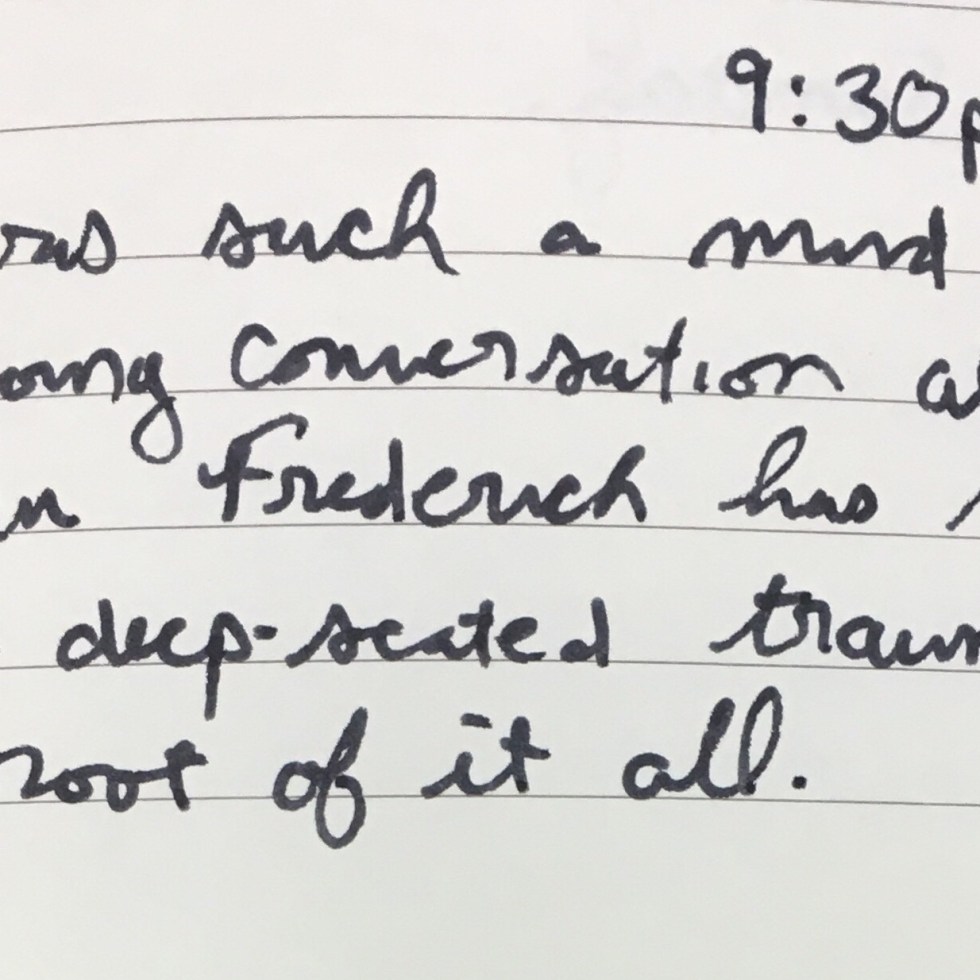 9:30p
was such a mind
ong conversation a
n Frederick has
deep-seated traum
root of it all.